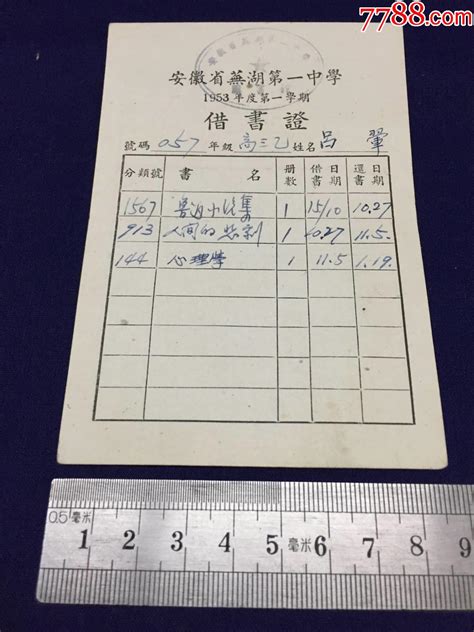 7788.com
安徽省蕪湖第一中學
安徽省蕪湖第一中學
1953年度第一學期
借書證
號碼 057 年級 高三乙 姓名 呂翬
分類號 書名 册数 借書日期 還書日期
1567 魯迅小説集 1 15/10 10.27
913 人间的悲剧 1 10.27 11.5.
144 心理學 1 11.5 1.19.
0.5毫米 1 2 3 4 5毫米6 7 8 9